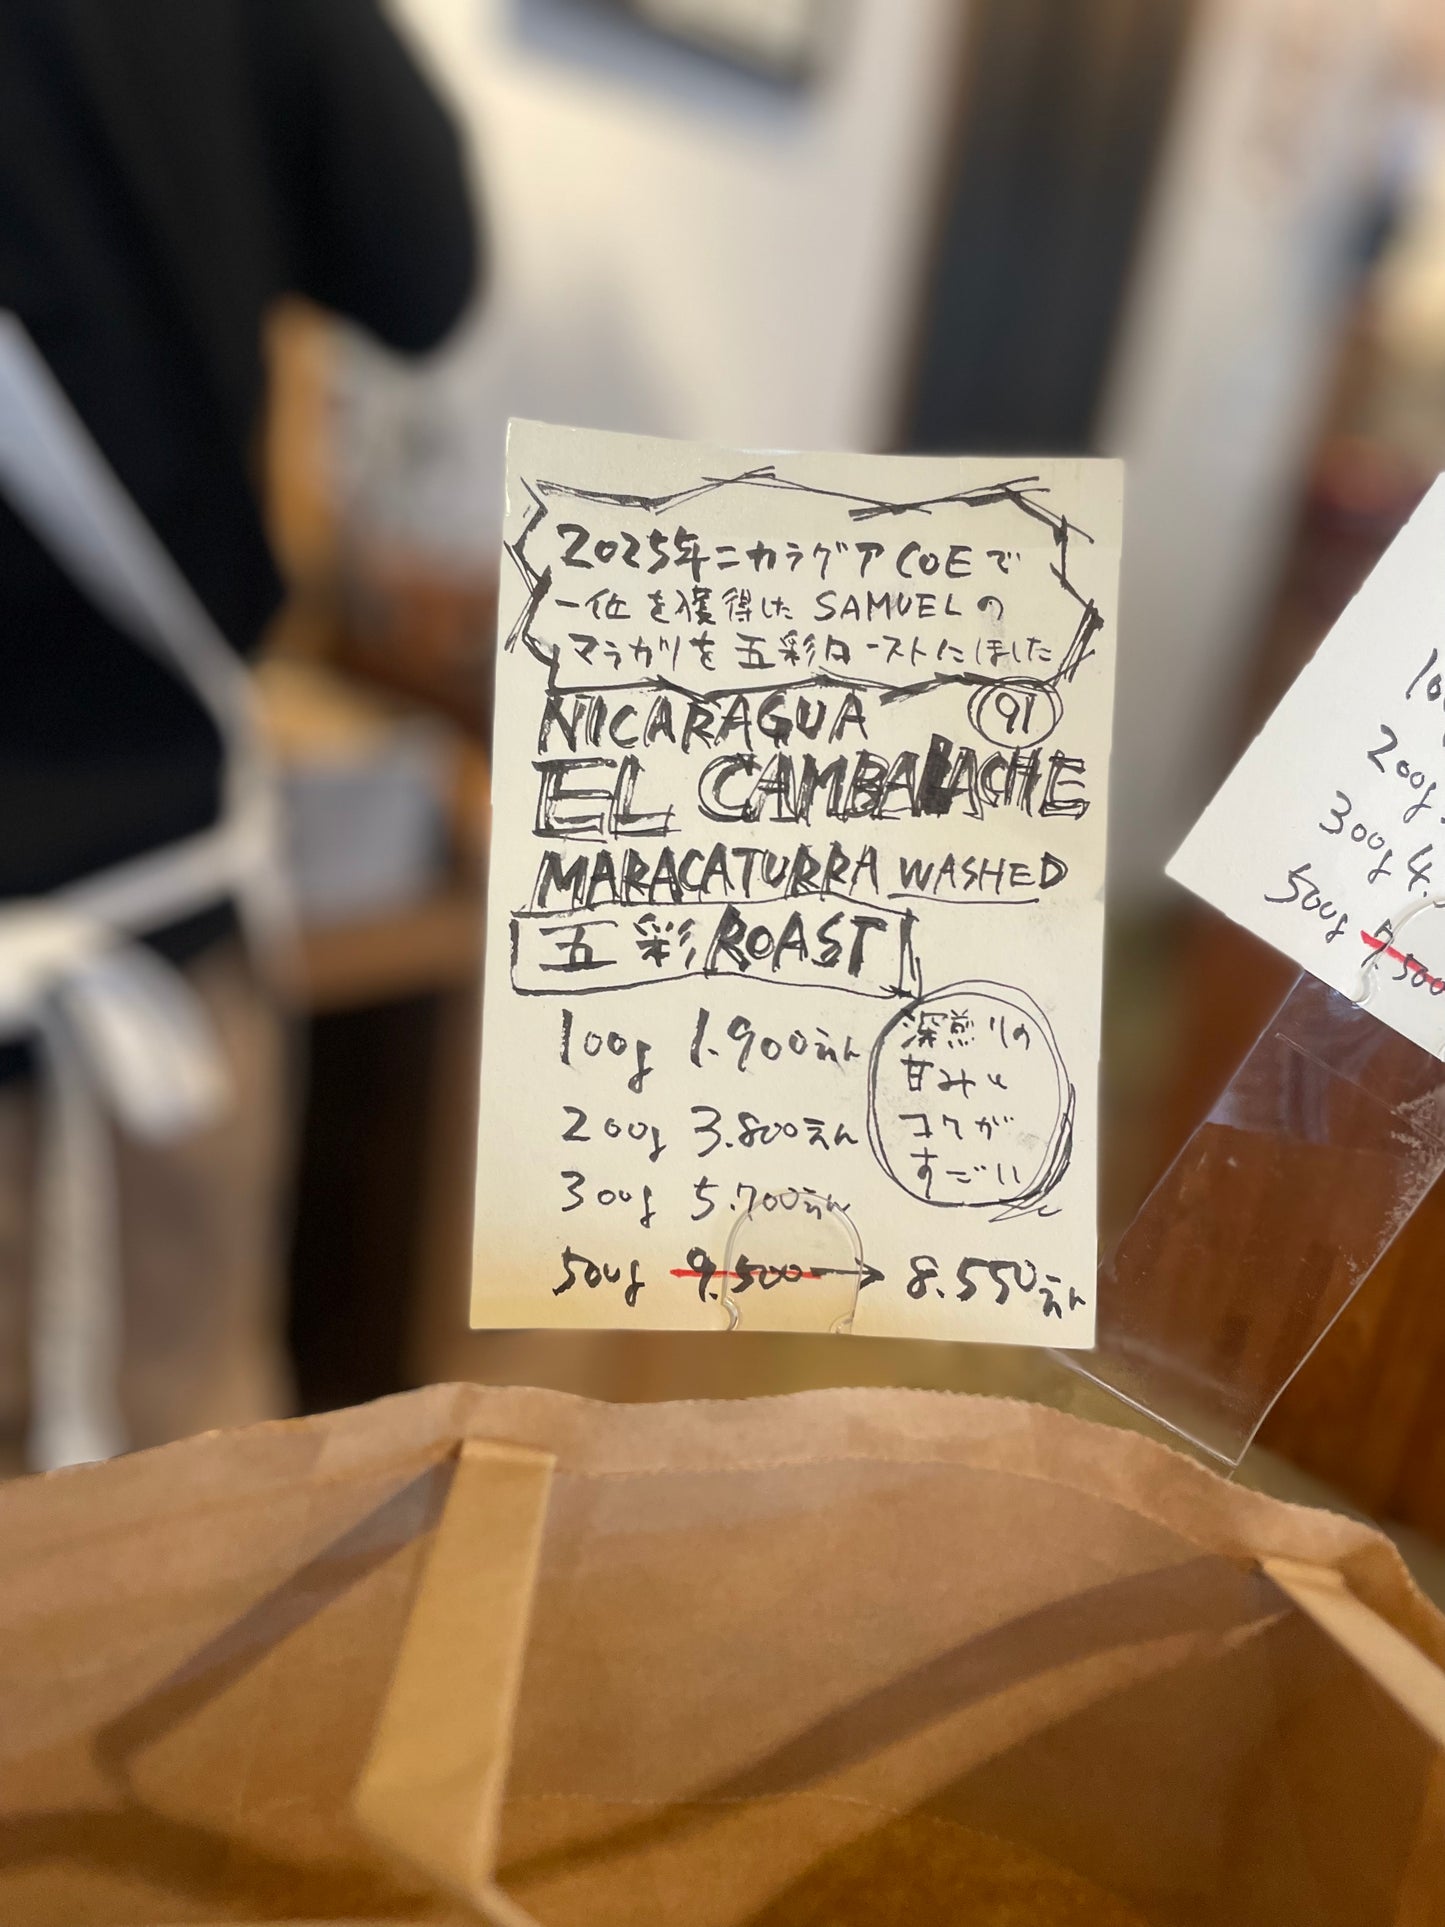 2025年ニカラグア COEで
一位を獲得した SAMUELの
マラカツを五彩ローストにしました
NICARAGUA 91
EL CAMBALACHE
MARACATURRA WASHED
五彩 ROAST
100g 1.900えん
200g 3.800えん
300g 5.700えん
500g 9.500 → 8.550えん
深煎りの
甘みと
コクが
すごい
200g
300g 4.
500g 7.500